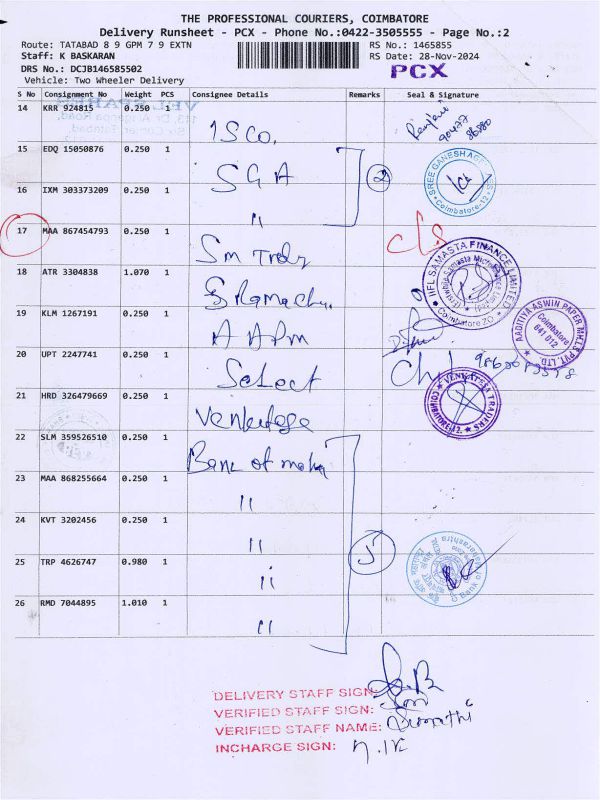 THE PROFESSIONAL COURIERS, COIMBATORE
Delivery Runsheet - PCX - Phone No.:0422-3505555 - Page No.:2
Route: TATABAD 8 9 GPM 7 9 EXTN
RS No.: 1465855
Staff: K BASKARAN
RS Date: 28-Nov-2024
DRS No.: DCJB146585502
PCX
Vehicle: Two Wheeler Delivery
S No Consignment No Weight PCS Consignee Details Remarks Seal & Signature
14 KRR 924815 0.250 1 ISCO.
15 EDQ 15050876 0.250 1 SGA 2
SREE GANESHAR
Coimbatore-12
16 IXM 303373209 0.250 1 "
17 MAA 867454793 0.250 1 Sm c/s
18 ATR 3304838 1.070 1
IIFL SAMASTA FINANCE LIMITED
Coimbatore ZO
19 KLM 1267191 0.250 1
AADITYA ASWIN PAPER MKLS PVT. LTD.
Coimbatore
641 012
20 UPT 2247741 0.250 1 Select
21 HRD 326479669 0.250 1
VENKATESA TRADERS
COIMBATORE-12.
22 SLM 359526510 0.250 1 Bank of maha
23 MAA 868255664 0.250 1 "
24 KVT 3202456 0.250 1 " 5
25 TRP 4626747 0.980 1 "
26 RMD 7044895 1.010 1 "
DELIVERY STAFF SIGN:
VERIFIED STAFF SIGN:
VERIFIED STAFF NAME:
INCHARGE SIGN: